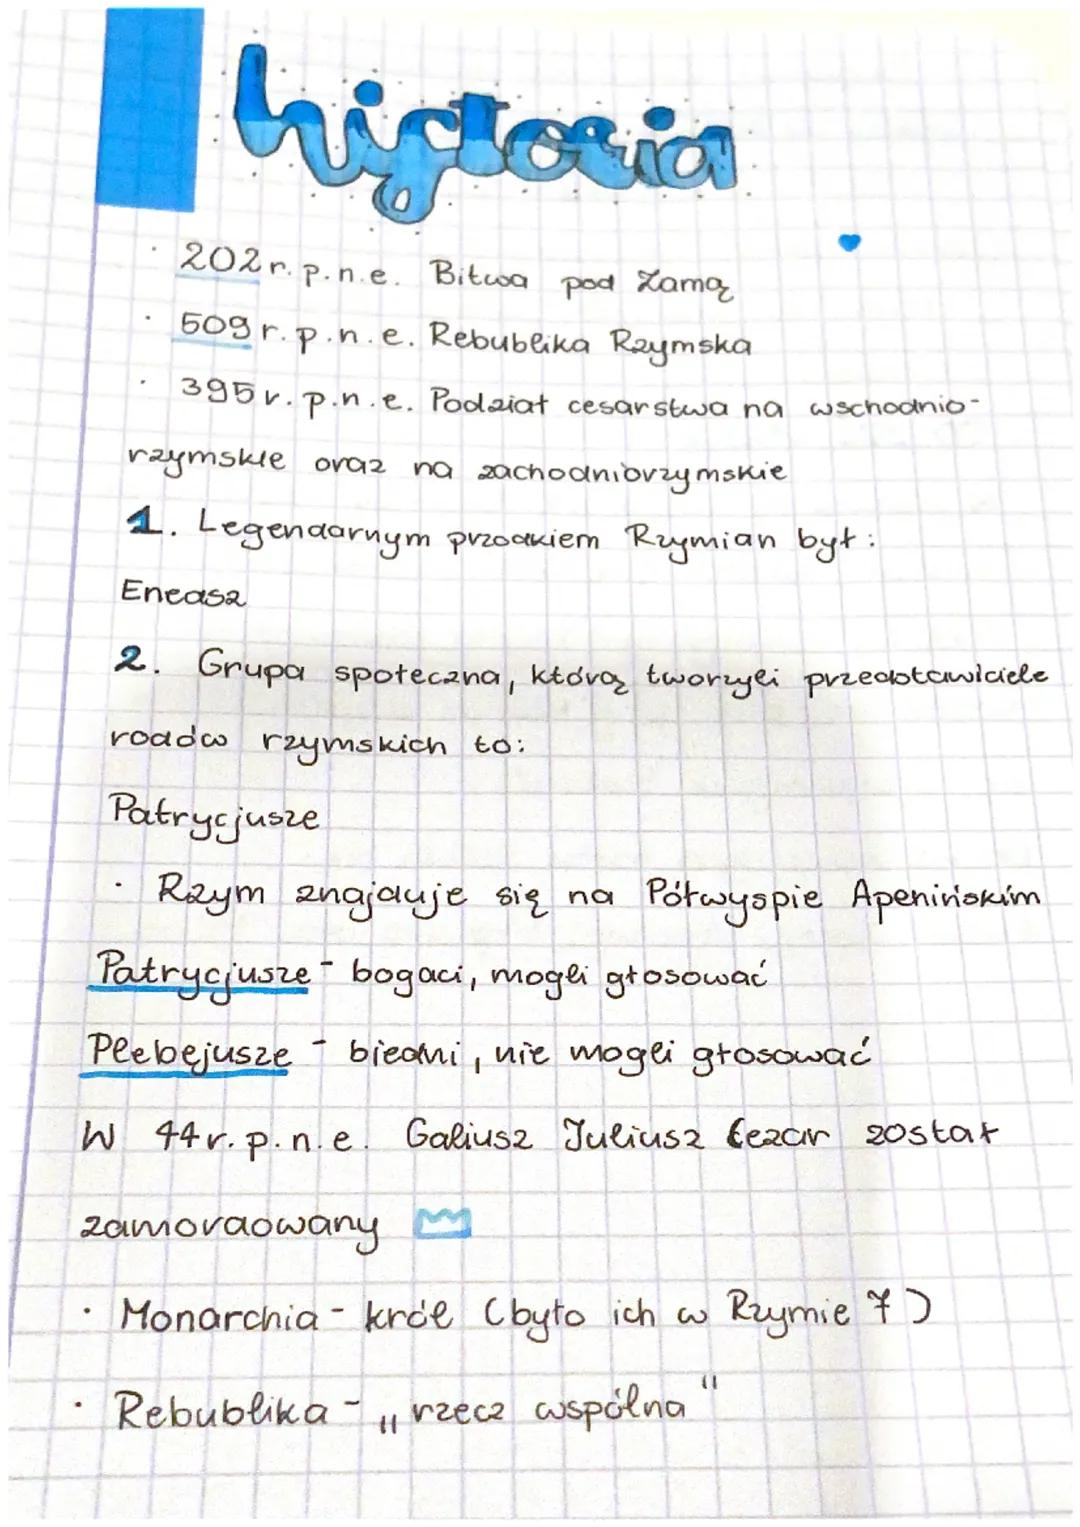 historia
· 202 r. p.n.e. Bitwa pod Zamą
· 509 r. p.n.e. Rebublika Rzymska
· 395 r. p.n.e. Podział cesarstwa na wschodnio-
rzymskie oraz na zachodniorzymskie
1. Legendarnym przodkiem Rzymian był:
Eneasz
2. Grupa społeczna, którą tworzyli przedstawiciele
rodów rzymskich to:
Patrycjusze
· Rzym znajduje się na Półwyspie Apenińskim
Patrycjusze - bogaci, mogli głosować
Plebejusze - biedni, nie mogli głosować
W 44 r. p.n.e. Galiusz Juliusz Cezar został
zamordowany
· Monarchia - król (było ich w Rzymie 7)
· Rebublika - „rzecz wspólna"